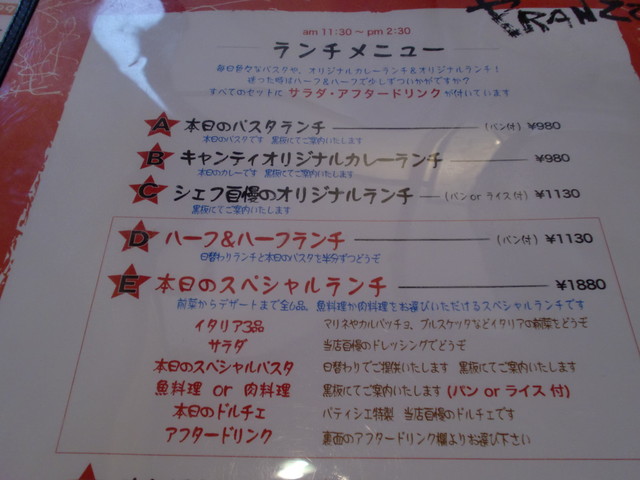 am 11:30 ～ pm 2:30
ランチメニュー
毎日色々なパスタや、オリジナルカレーランチ&オリジナルランチ!
迷った時はハーフ&ハーフで少しずついかがですか?
すべてのセットに サラダ・アフタードリンクが付いています
A 本日のパスタランチ (パン付) ¥980
本日のパスタです 黒板にてご案内いたします
B キャンティオリジナルカレーランチ ¥980
本日のカレーです 黒板にてご案内いたします
C シェフ自慢のオリジナルランチ (パン or ライス付) ¥1130
黒板にてご案内いたします
D ハーフ&ハーフランチ (パン付) ¥1130
日替わりランチと本日のパスタを半分ずつどうぞ
E 本日のスペシャルランチ ¥1880
前菜からデザートまで全6品、魚料理か肉料理をお選びいただけるスペシャルランチです
イタリア3品 マリネやカルパッチョ、ブルスケッタなどイタリアの前菜をどうぞ
サラダ 当店自慢のドレッシングでどうぞ
本日のスペシャルパスタ 日替わりでご提供いたします 黒板にてご案内いたします
魚料理 or 肉料理 黒板にてご案内いたします (パン or ライス 付)
本日のドルチェ パティシエ特製 当店自慢のドルチェです
アフタードリンク 裏面のアフタードリンク欄よりお選び下さい